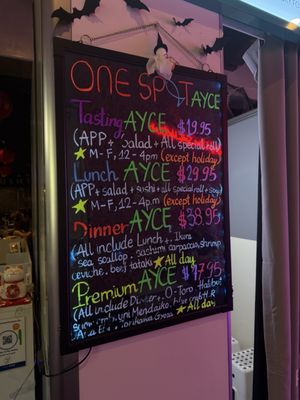 ONE SPOT AYCE
Tasting AYCE $19.95
(APP + Salad + All special roll)
M-F, 12-4pm (except holiday)
Lunch AYCE $29.95
(APP + salad + sushi + all special roll + soup)
M-F, 12-4pm (except holiday)
Dinner AYCE $38.95
(All include Lunch +, Ikura
sea scallop, sashimi carpaccio, shrimp
ceviche, beef tataki All day
Premium AYCE $47.95
(All include Dinner +, O-Toro Halibut
uni Mendaiko
All day